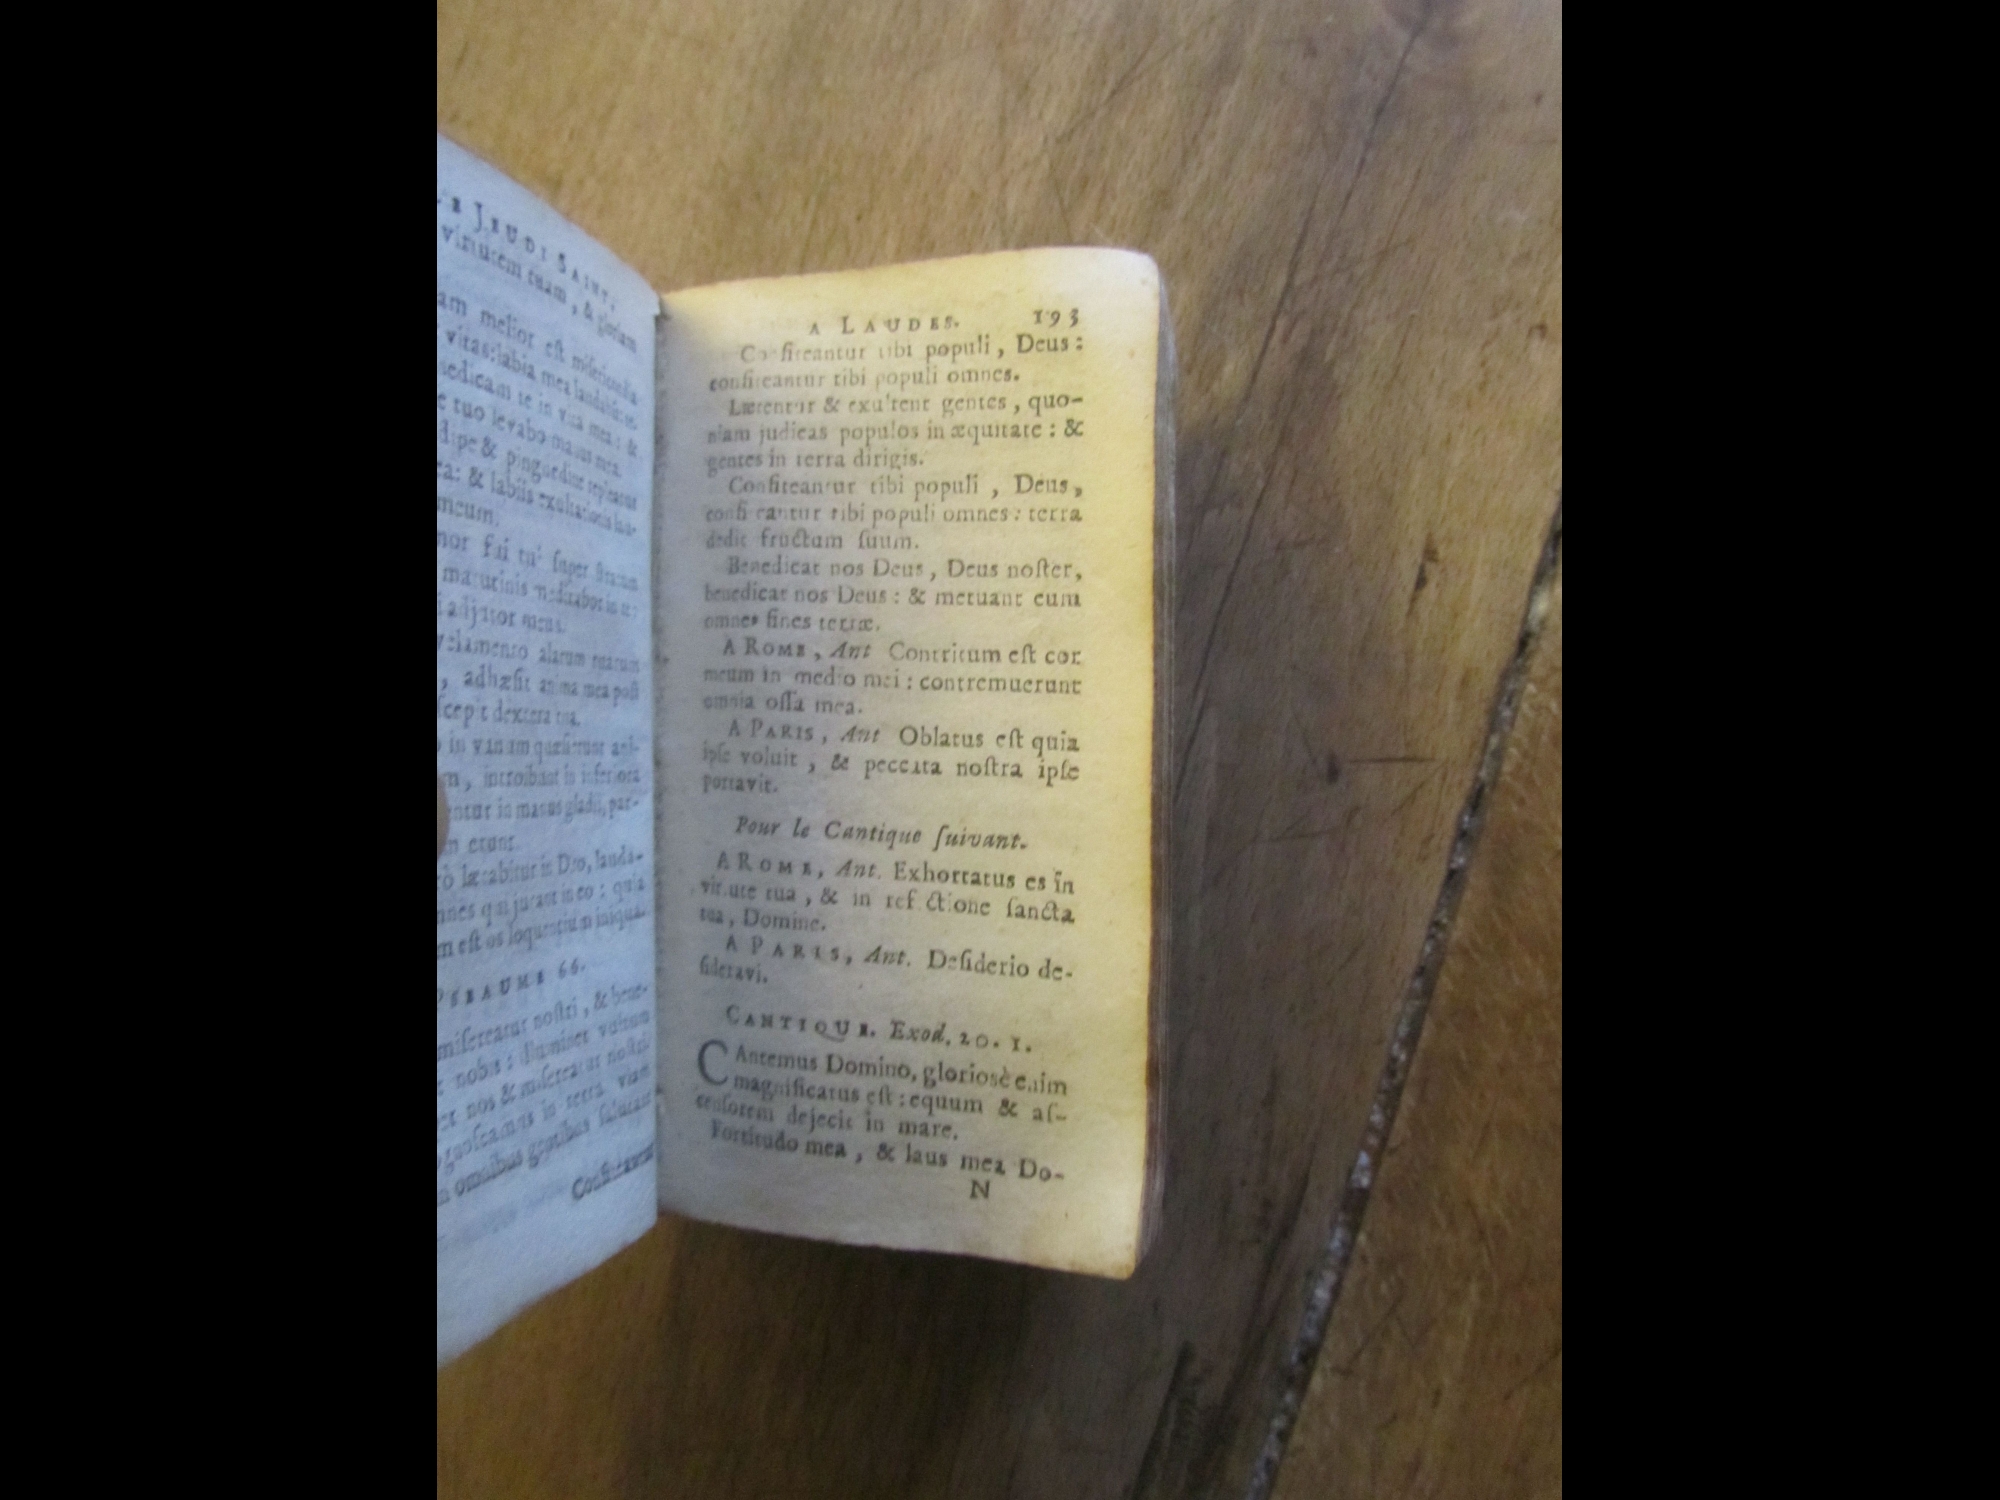 JEUDI SAINT,
virtutem tuam, & gloriam
melior eſt miſericordia
vitas: labia mea laudabunt
te in vita mea: &
tuo levabo manus meas.
& pinguedine repleatur
& labiis exultationis
meum.
fui tui ſuper ſtratum
matutinis meditabor in te:
adjutor meus.
velamento alarum tuarum
, adhæſit anima mea poſt
dextera tua.
in vanum quæſierunt ani-
, introibunt in inferiora
in manus gladii, par-
erunt.
lætabitur in Deo, lauda-
qui jurant in eo: quia
eſt os loquentium iniqua.
PSEAUME 66.
miſereatur noſtri, & bene-
nobis: illuminet vultum
nos & miſereatur noſtri.
in terra viam
omnibus gentibus ſalutare
Confiteantur
A LAUDES. 193
Confiteantur tibi populi, Deus:
confiteantur tibi populi omnes.
Lætentur & exultent gentes, quo-
niam judicas populos in æquitate: &
gentes in terra dirigis.
Confiteantur tibi populi, Deus,
confiteantur tibi populi omnes: terra
dedit fructum ſuum.
Benedicat nos Deus, Deus noſter,
benedicat nos Deus: & metuant eum
omnes fines terræ.
A ROME, Ant Contritum eſt cor
meum in medio mei: contremuerunt
omnia oſſa mea.
A PARIS, Ant Oblatus eſt quia
ipſe voluit, & peccata noſtra ipſe
portavit.
Pour le Cantique ſuivant.
A ROME, Ant. Exhortatus es in
virtute tua, & in refectione ſancta
tua, Domine.
A PARIS, Ant. Deſiderio de-
ſideravi.
CANTIQUE. Exod. 20. 1.
CAntemus Domino, glorioſè enim
magnificatus eſt: equum & aſ-
cenſorem dejecit in mare.
Fortitudo mea, & laus mea Do-
N